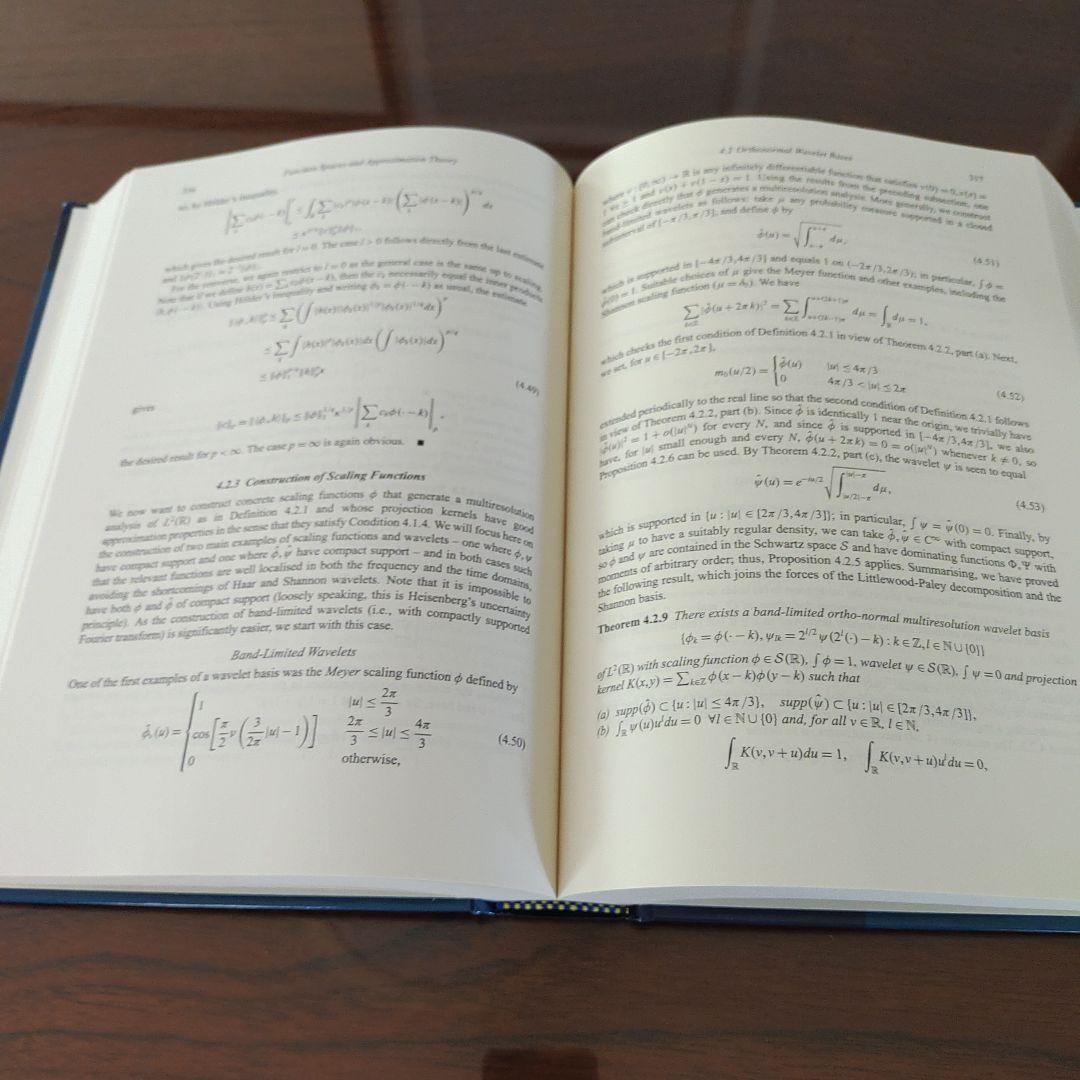 Function Spaces and Approximation Theory
so, by Hölder's inequality,
which gives the desired result for l = 0. The case l > 0 follows directly from the last estimate
For the converse, we again restrict to l = 0 as the general case is the same up to scaling.
Note that if we define as usual, the estimate
(4.49)
gives
the desired result for p < ∞. The case p = ∞ is again obvious. ■
4.2.3 Construction of Scaling Functions
We now want to construct concrete scaling functions ϕ that generate a multiresolution
analysis of L²(ℝ) as in Definition 4.2.1 and whose projection kernels have good
approximation properties in the sense that they satisfy Condition 4.1.4. We will focus here on
the construction of two main examples of scaling functions and wavelets – one where ϕ, ψ
have compact support and one where ϕ̂, ψ̂ have compact support – and in both cases such
that the relevant functions are well localised in both the frequency and the time domains,
avoiding the shortcomings of Haar and Shannon wavelets. Note that it is impossible to
have both ϕ and ϕ̂ of compact support (loosely speaking, this is Heisenberg's uncertainty
principle). As the construction of band-limited wavelets (i.e., with compactly supported
Fourier transform) is significantly easier, we start with this case.
Band-Limited Wavelets
One of the first examples of a wavelet basis was the Meyer scaling function ϕ defined by
1 |u| ≤ 2π/3
ϕ̂, (u) = { cos[π/2 ν(3/2π |u| − 1)] 2π/3 ≤ |u| ≤ 4π/3 (4.50)
0 otherwise,
4.2 Orthonormal Wavelet Bases
317
where ν : [0,∞) → ℝ is any infinitely differentiable function that satisfies ν(0) = 0, ν(x) =
1 ∀x ≥ 1 and ν(x) + ν(1 − x) = 1. Using the results from the preceding subsection, one
can check directly that ϕ generates a multiresolution analysis. More generally, we construct
band-limited wavelets as follows: take μ any probability measure supported in a closed
subinterval of [−π/3, π/3], and define ϕ by
ϕ̂(u) = √∫_{u−π}^{u+π} dμ, (4.51)
which is supported in [−4π/3, 4π/3] and equals 1 on (−2π/3, 2π/3); in particular, ∫ϕ =
ϕ̂(0) = 1. Suitable choices of μ give the Meyer function and other examples, including the
Shannon scaling function (μ = δ₀). We have
∑_{k∈ℤ} |ϕ̂(u + 2πk)|² = ∑_{k∈ℤ} ∫_{u+(2k−1)π}^{u+(2k+1)π} dμ = ∫_ℝ dμ = 1,
which checks the first condition of Definition 4.2.1 in view of Theorem 4.2.2, part (a). Next,
we set, for u ∈ [−2π, 2π],
m₀(u/2) = { ϕ̂(u) |u| ≤ 4π/3
0 4π/3 < |u| ≤ 2π (4.52)
extended periodically to the real line so that the second condition of Definition 4.2.1 follows
in view of Theorem 4.2.2, part (b). Since ϕ̂ is identically 1 near the origin, we trivially have
|ϕ̂(u)|² = 1 + o(|u|ᴺ) for every N, and since ϕ̂ is supported in [−4π/3, 4π/3], we also
have, for |u| small enough and every N, ϕ̂(u + 2πk) = 0 = o(|u|ᴺ) whenever k ≠ 0, so
Proposition 4.2.6 can be used. By Theorem 4.2.2, part (c), the wavelet ψ is seen to equal
ψ̂(u) = e^{−iu/2} √∫_{|u/2|−π}^{|u|−π} dμ, (4.53)
which is supported in {u : |u| ∈ [2π/3, 4π/3]}; in particular, ∫ψ = ψ̂(0) = 0. Finally, by
taking μ to have a suitably regular density, we can take ϕ̂, ψ̂ ∈ C^∞ with compact support,
so ϕ and ψ are contained in the Schwartz space S and have dominating functions Φ, Ψ with
moments of arbitrary order; thus, Proposition 4.2.5 applies. Summarising, we have proved
the following result, which joins the forces of the Littlewood-Paley decomposition and the
Shannon basis.
Theorem 4.2.9 There exists a band-limited ortho-normal multiresolution wavelet basis
{ϕₖ = ϕ(· − k), ψₗₖ = 2^{l/2} ψ(2ˡ(·) − k) : k ∈ ℤ, l ∈ ℕ ∪ {0}}
of L²(ℝ) with scaling function ϕ ∈ S(ℝ), ∫ϕ = 1, wavelet ψ ∈ S(ℝ), ∫ψ = 0 and projection
kernel K(x, y) = ∑_{k∈ℤ} ϕ(x − k)ϕ(y − k) such that
(a) supp(ϕ̂) ⊂ {u : |u| ≤ 4π/3}, supp(ψ̂) ⊂ {u : |u| ∈ [2π/3, 4π/3]},
(b) ∫_ℝ ψ(u)uˡdu = 0 ∀l ∈ ℕ ∪ {0} and, for all v ∈ ℝ, l ∈ ℕ,
∫_ℝ K(v, v + u)du = 1, ∫_ℝ K(v, v + u)uˡdu = 0,